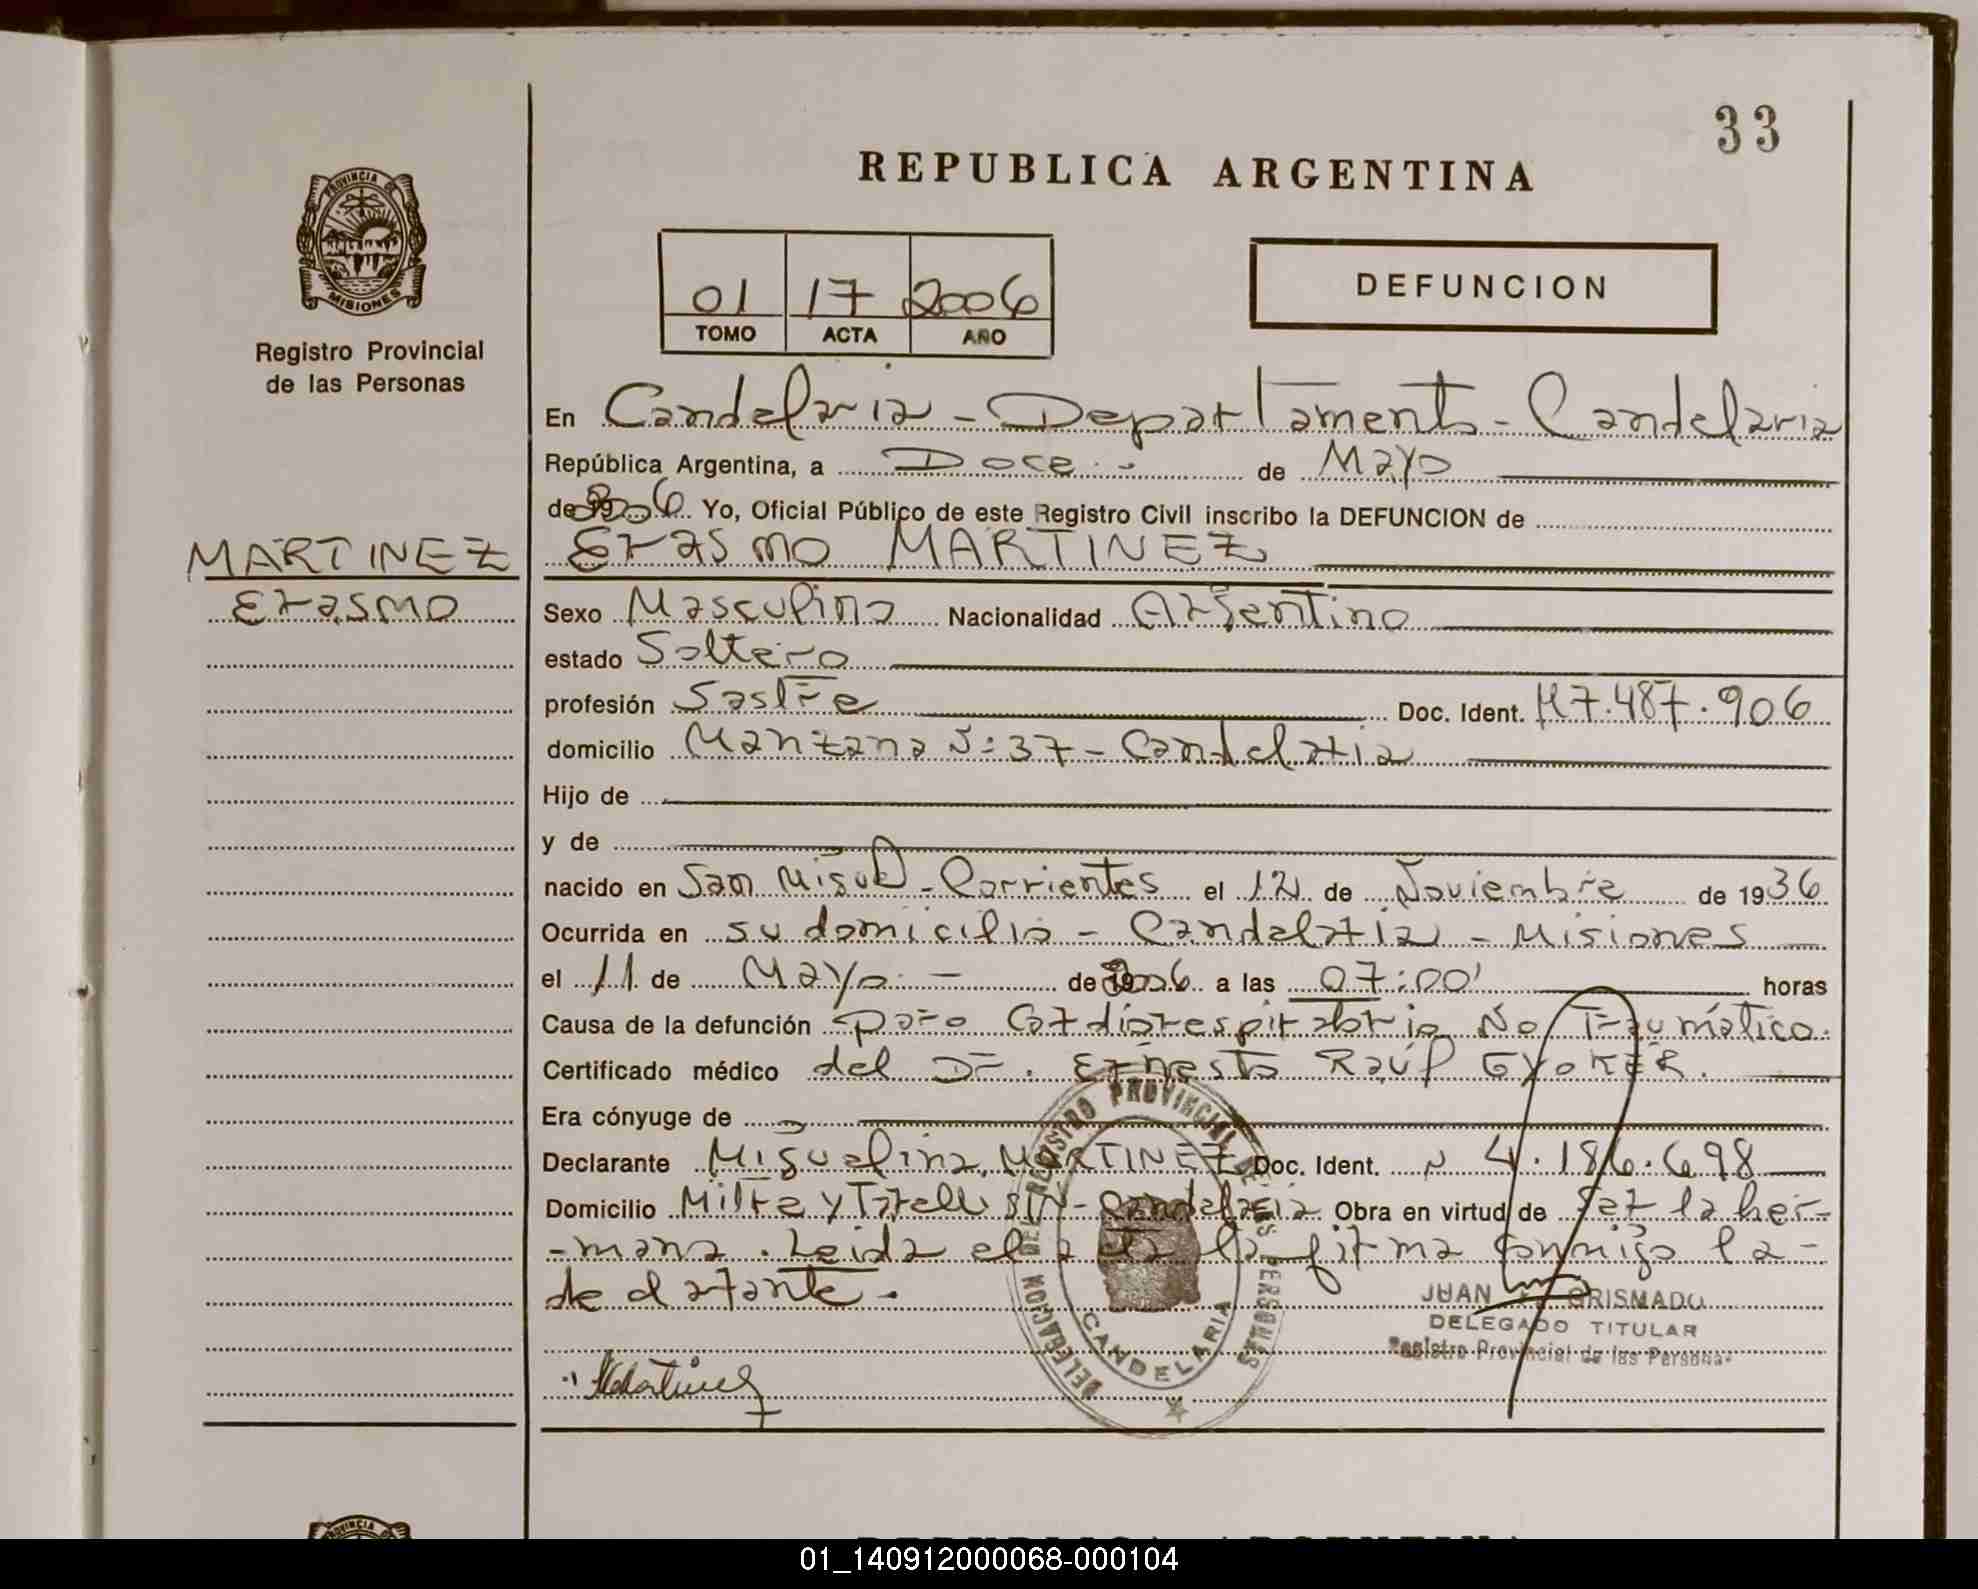 33
REPUBLICA ARGENTINA
PROVINCIA DE
MISIONES
Registro Provincial
de las Personas
01 17 2006
TOMO ACTA AÑO
DEFUNCION
En Candelaria - Departamento - Candelaria
República Argentina, a Doce - de Mayo
de 2006 Yo, Oficial Público de este Registro Civil inscribo la DEFUNCION de
MARTINEZ
Erasmo
Erasmo MARTINEZ
Sexo Masculino Nacionalidad Argentino
estado Soltero
profesión Sastre Doc. Ident. M 7.487.906
domicilio Manzana Nº 37 - Candelaria
Hijo de
y de
nacido en San Miguel - Corrientes el 12 de Noviembre de 1936
Ocurrida en su domicilio - Candelaria - Misiones
el 11 de Mayo - de 2006 a las 07:00' horas
Causa de la defunción paro Cardiorespiratorio No Traumático.
Certificado médico del Dr. Ernesto Raúl GYOKER.
Era cónyuge de
Declarante Miguelina MARTINEZ Doc. Ident. N 4.186.698
Domicilio Mitre y S/N - Candelaria Obra en virtud de ser la her-
-mana. Leida el acta la firma conmigo la -
declarante.
JUAN GRISMADO
DELEGADO TITULAR
Registro Provincial de las Personas
Martinez
DELEGACION DEL REGISTRO PROVINCIAL DE LAS PERSONAS
CANDELARIA
PROVINCIA DE
01_140912000068-000104